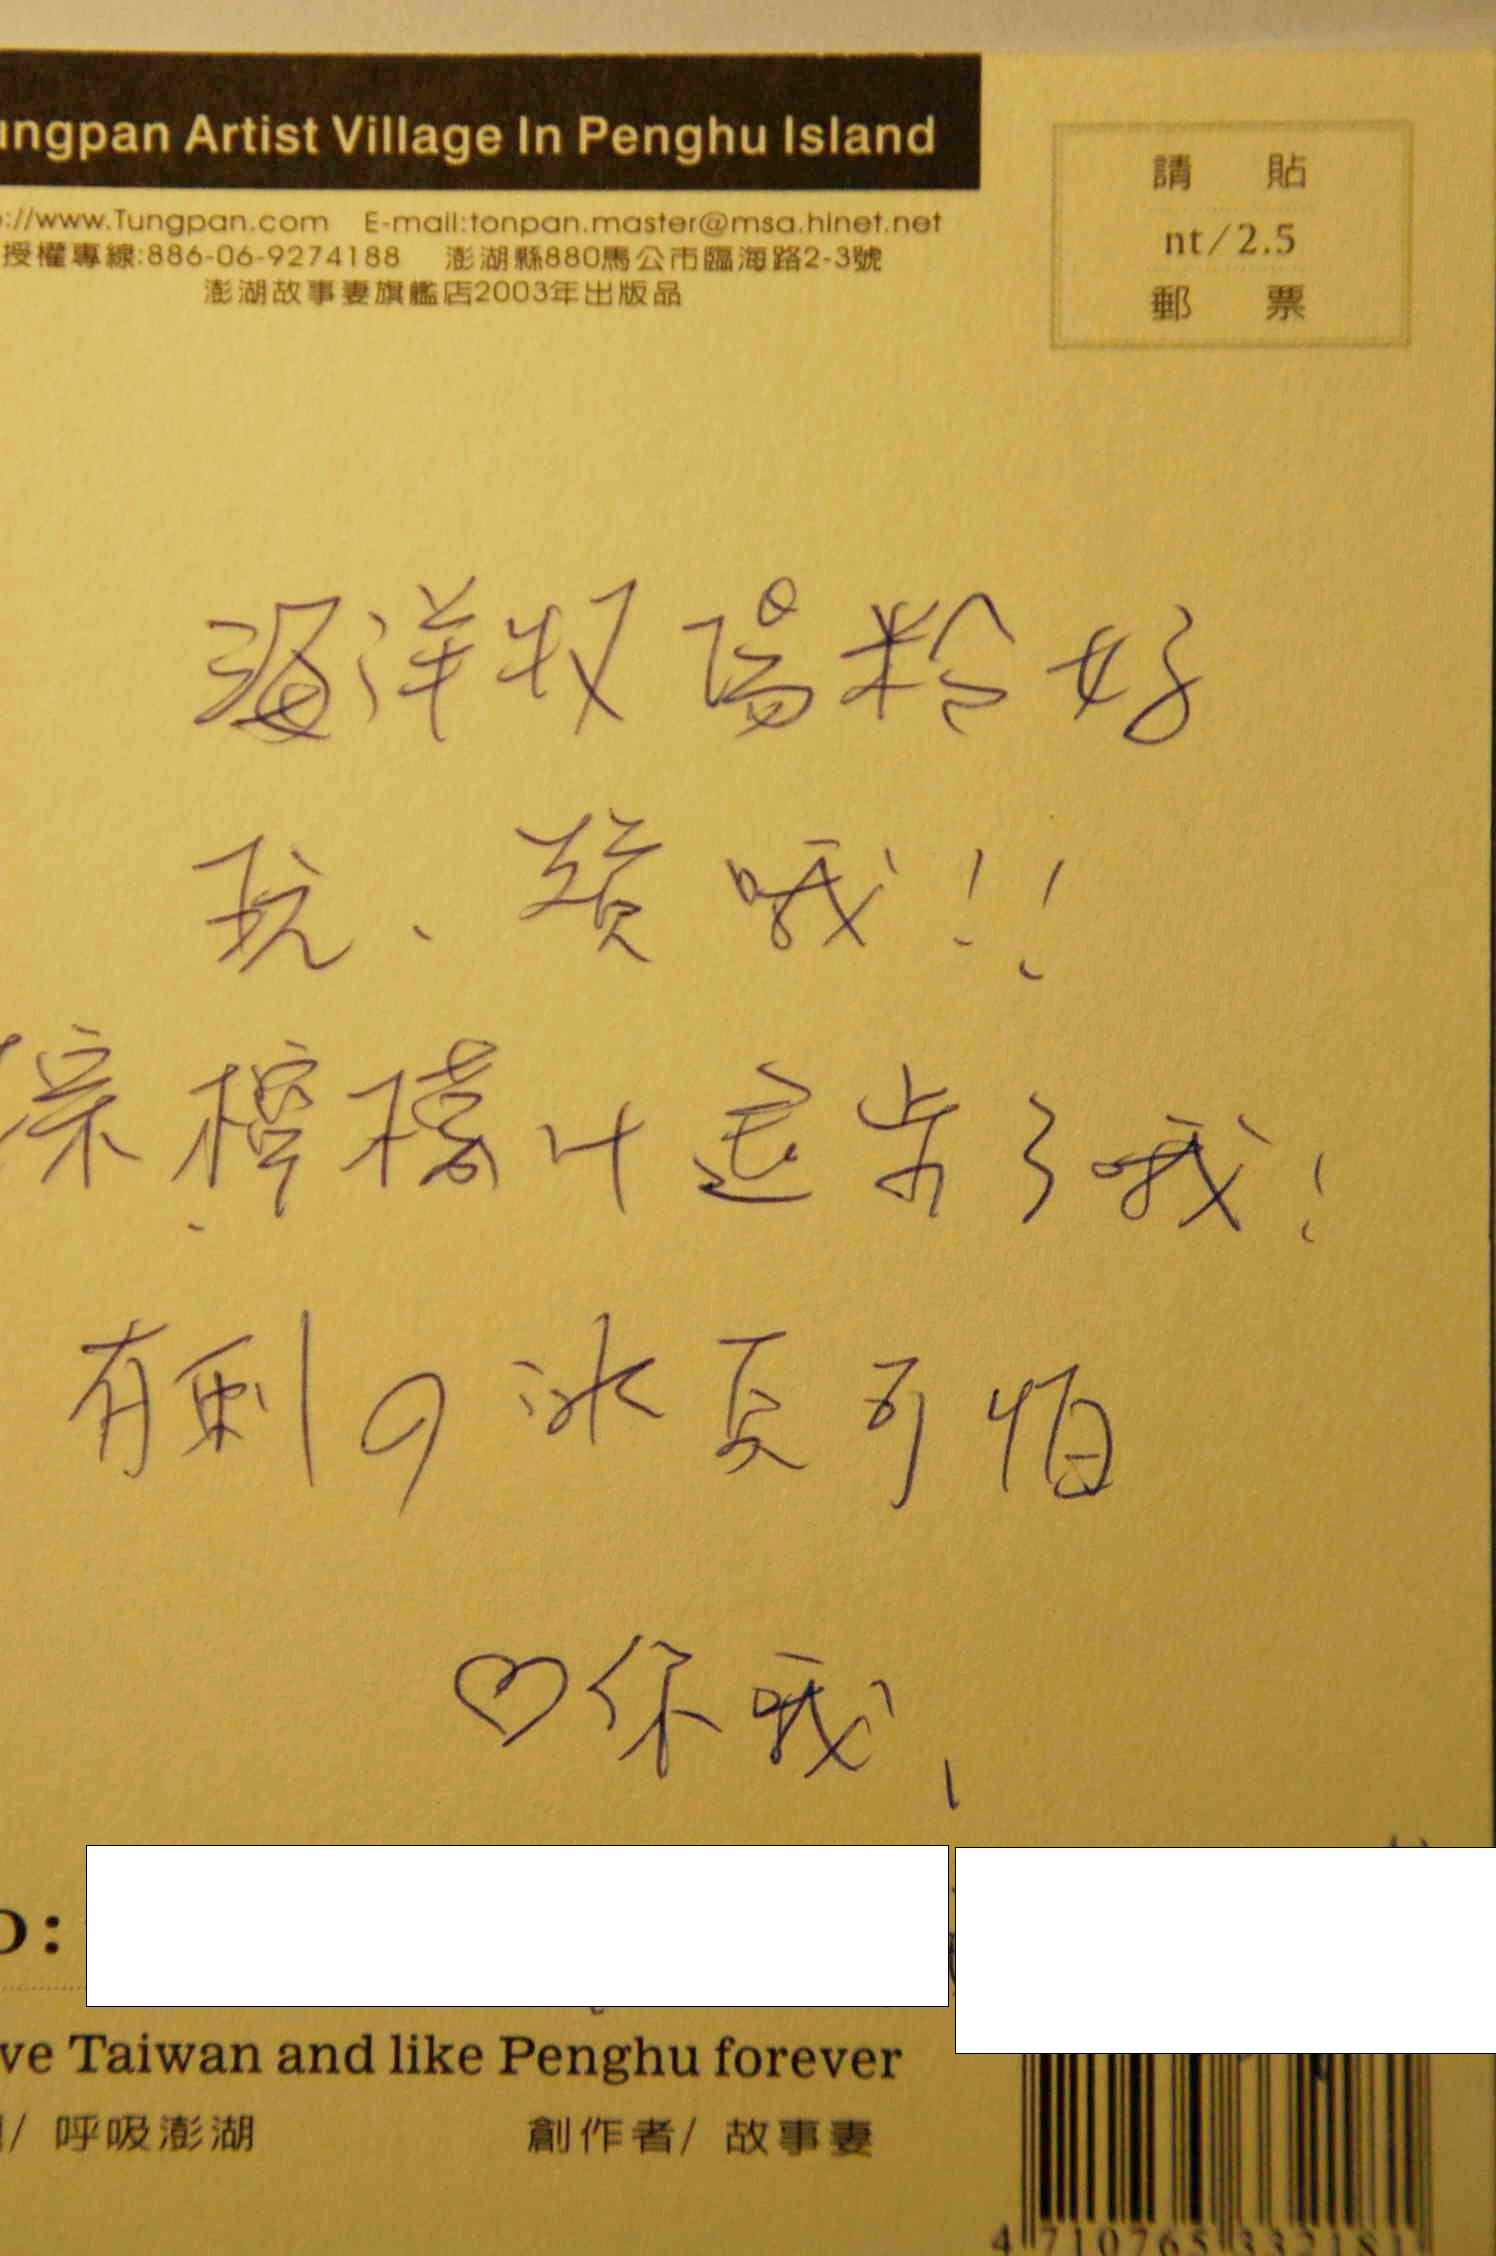 ungpan Artist Village In Penghu Island
://www.Tungpan.com E-mail:tonpan.master@msa.hinet.net
授權專線:886-06-9274188 澎湖縣880馬公市臨海路2-3號
澎湖故事妻旗艦店2003年出版品
請 貼
nt/2.5
郵 票
海洋牧場粉好
玩、讚哦!!
檸檬汁進步了哦!
有刺の冰真可怕
♡你哦,
O:
ve Taiwan and like Penghu forever
/ 呼吸澎湖 創作者/ 故事妻
4 710765 332181